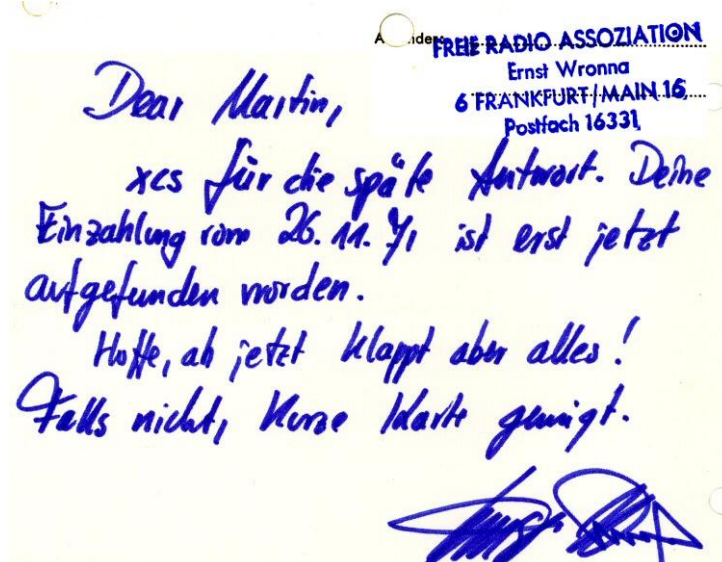 FREIE RADIO ASSOZIATION
Ernst Wronna
6 FRANKFURT/MAIN 16,
Postfach 16331,
Dear Martin,
xcs für die späte Antwort. Deine
Einzahlung vom 26. 11. 71 ist erst jetzt
aufgefunden worden.
Hoffe, ab jetzt klappt aber alles!
Falls nicht, kurze Karte genügt.